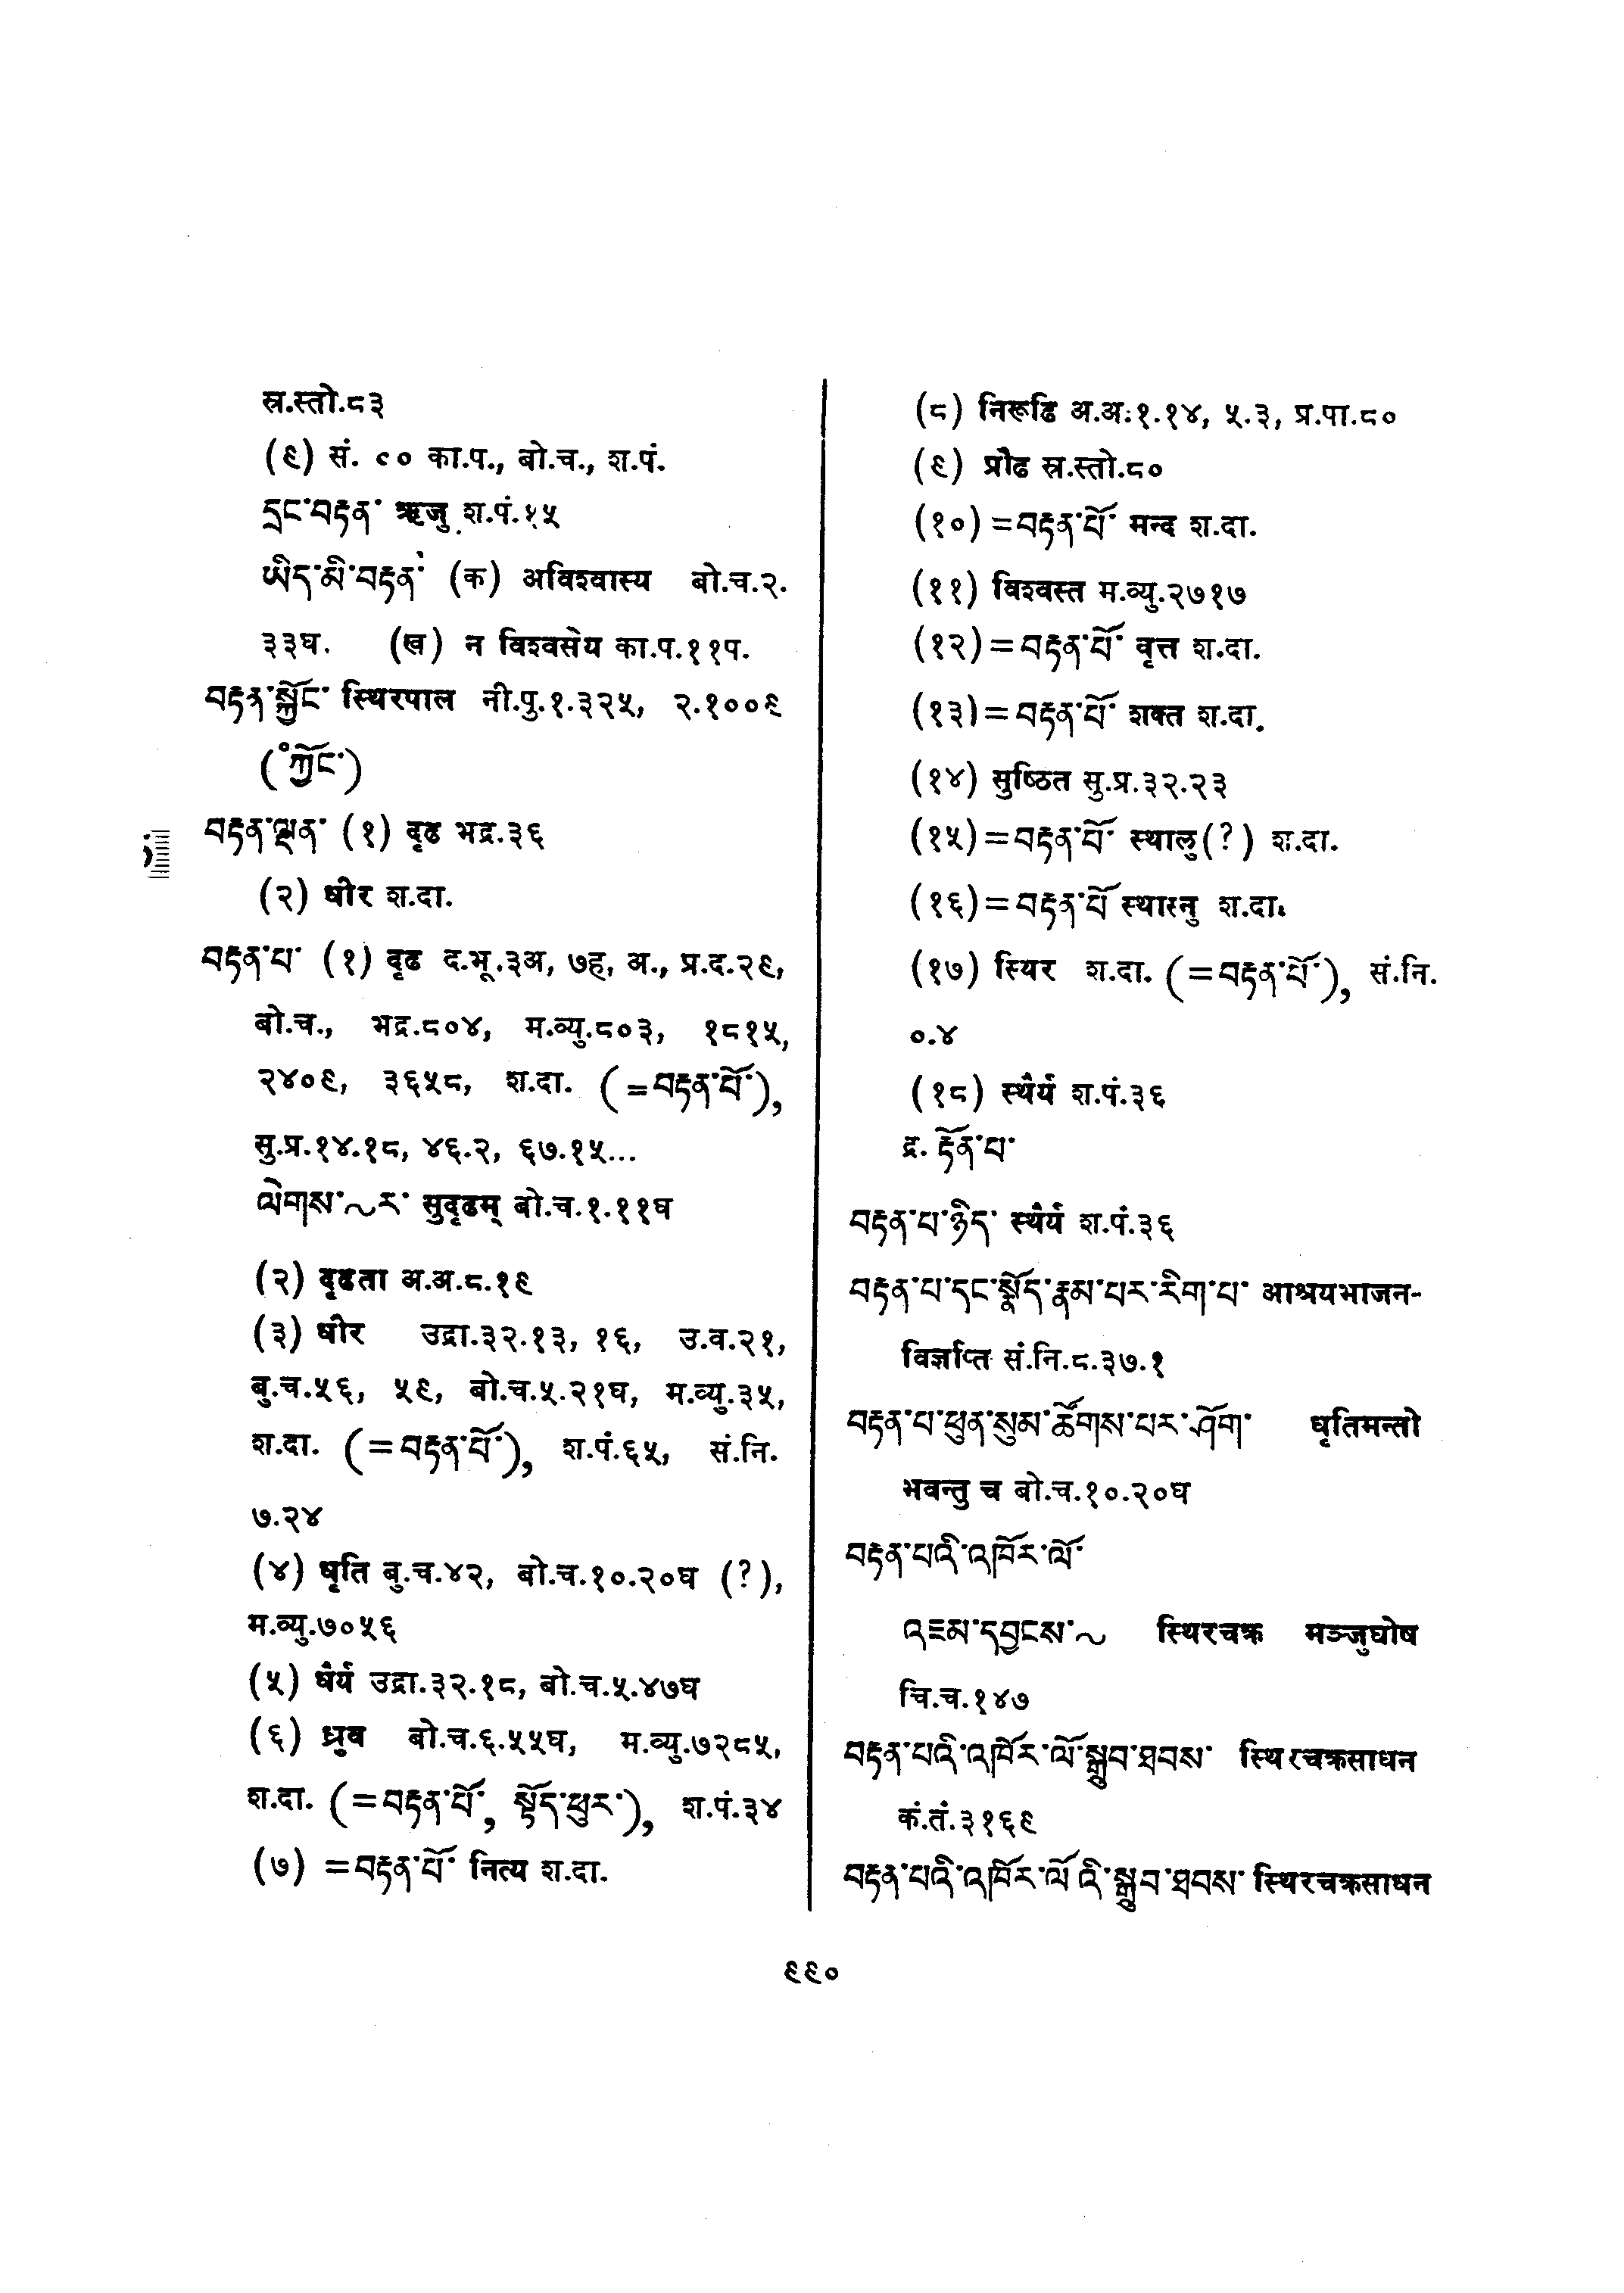 स्र.स्तो.८३
(९) सं. ८० का.प., बो.च., श.पं.
དྲང་བརྟན་ ऋजु श.पं.१५
ཡིད་མི་བརྟན་ (क) अविश्वास्य बो.च.२.
३३घ. (ख) न विश्वसेय का.प.११प.
བརྟན་སྐྱོང་ स्थिरपाल नी.पु.१.३२५, २.१००९
(°ཀྱོང་)
བརྟན་ལྡན་ (१) दृढ भद्र.३६
(२) धीर श.दा.
བརྟན་པ་ (१) दृढ द.भू.३अ, ७ह, अ., प्र.द.२९,
बो.च., भद्र.८०४, म.व्यु.८०३, १८१५,
२४०९, ३६५८, श.दा. (=བརྟན་པོ་),
सु.प्र.१४.१८, ४६.२, ६७.१५...
ལེགས་~ར་ सुदृढम् बो.च.१.११घ
(२) दृढता अ.अ.८.१९
(३) धीर उद्रा.३२.१३, १६, उ.व.२१,
बु.च.५६, ५९, बो.च.५.२१घ, म.व्यु.३५,
श.दा. (=བརྟན་པོ་), श.पं.६५, सं.नि.
७.२४
(४) धृति बु.च.४२, बो.च.१०.२०घ (?),
म.व्यु.७०५६
(५) धैर्य उद्रा.३२.१८, बो.च.५.४७घ
(६) ध्रुव बो.च.६.५५घ, म.व्यु.७२८५,
श.दा. (=བརྟན་པོ་, སྟོད་ཕུར་), श.पं.३४
(७) =བརྟན་པོ་ नित्य श.दा.
(८) निरूढि अ.अ.१.१४, ५.३, प्र.पा.८०
(९) प्रौढ स्र.स्तो.८०
(१०) =བརྟན་པོ་ मन्द श.दा.
(११) विश्वस्त म.व्यु.२७१७
(१२)=བརྟན་པོ་ वृत्त श.दा.
(१३)=བརྟན་པོ་ शक्त श.दा.
(१४) सुष्ठित सु.प्र.३२.२३
(१५)=བརྟན་པོ་ स्थालु(?) श.दा.
(१६)=བརྟན་པོ स्थास्नु श.दा.
(१७) स्थिर श.दा. (=བརྟན་པོ་), सं.नि.
०.४
(१८) स्थैर्य श.पं.३६
द्र. རྟོན་པ་
བརྟན་པ་ཉིད་ स्थैर्य श.पं.३६
བརྟན་པ་དང་སྣོད་རྣམ་པར་རིག་པ་ आश्रयभाजन-
विज्ञप्ति सं.नि.८.३७.१
བརྟན་པ་ཕུན་སུམ་ཚོགས་པར་ཤོག་ धृतिमन्तो
भवन्तु च बो.च.१०.२०घ
བརྟན་པའི་འཁོར་ལོ་
འཇམ་དབྱངས་~ स्थिरचक्र मञ्जुघोष
चि.च.१४७
བརྟན་པའི་འཁོར་ལོ་སྒྲུབ་ཐབས་ स्थिरचक्रसाधन
कं.तं.३१६९
བརྟན་པའི་འཁོར་ལོ འི་སྒྲུབ་ཐབས་ स्थिरचक्रसाधन
९९०